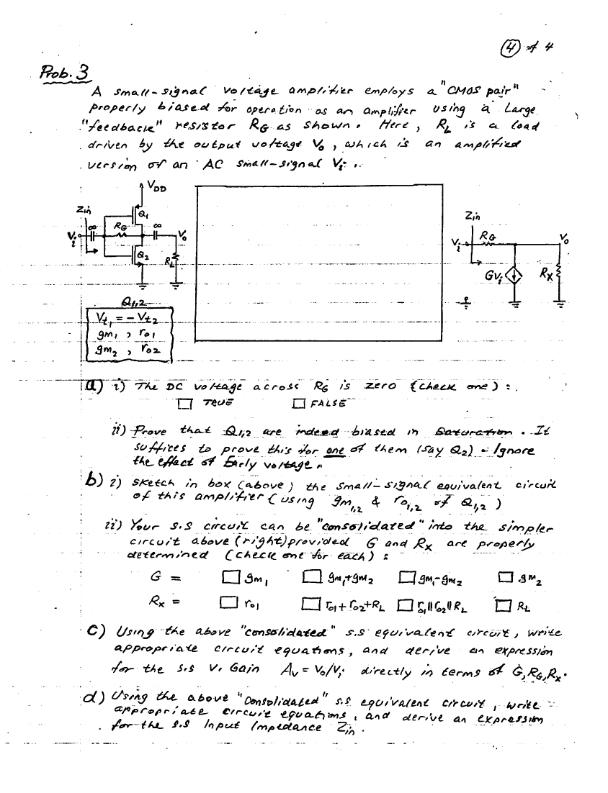 ④ of 4
Prob. 3
A small-signal voltage amplifier employs a "CMOS pair"
properly biased for operation as an amplifier using a Large
"feedback" resistor RG as shown. Here, RL is a load
driven by the output voltage Vo, which is an amplified
version of an AC small-signal Vi.
VDD
Zin
Q1
RG
∞
∞
Vi
Vo
Q2
RL
Q1,2
Vt1 = - Vt2
gm1, ro1
gm2, ro2
Zin
RG
Vi
Vo
GVi
RX
a) i) The DC voltage across RG is zero (check one):
☐ TRUE ☐ FALSE
ii) Prove that Q1,2 are indeed biased in Saturation. It
suffices to prove this for one of them (say Q2). Ignore
the effect of Early voltage.
b) i) Sketch in box (above) the small-signal equivalent circuit
of this amplifier (using gm1,2 & ro1,2 of Q1,2)
ii) Your s.s circuit can be "consolidated" into the simpler
circuit above (right) provided G and RX are properly
determined (check one for each):
G = ☐ gm1 ☐ gm1+gm2 ☐ gm1-gm2 ☐ gm2
RX = ☐ ro1 ☐ ro1+ro2+RL ☐ ro1||ro2||RL ☐ RL
c) Using the above "consolidated" s.s equivalent circuit, write
appropriate circuit equations, and derive an expression
for the s.s V. Gain Av = Vo/Vi directly in terms of G, RG, RX.
d) Using the above "consolidated" s.s. equivalent circuit, write
appropriate circuit equations, and derive an expression
for the s.s Input Impedance Zin.